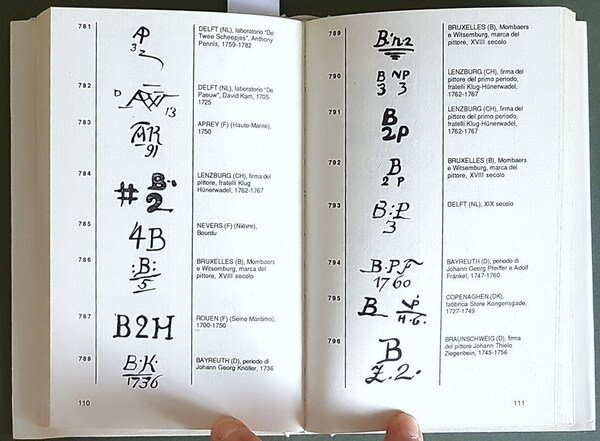 781
AP
32
DELFT (NL), laboratorio "De
Twee Scheepjes", Anthony
Pennis, 1759-1782
782
D
13
DELFT (NL), laboratorio "De
Paeuw", David Kam, 1705-
1725
783
AR
91
APREY (F) (Haute-Marne),
1750
784
# B.
2
LENZBURG (CH), firma del
pittore, fratelli Klug
Hünerwadel, 1762-1767
785
4B
NEVERS (F) (Nièvre),
Bourdu
786
:B:
5
BRUXELLES (B), Mombaers
e Witsemburg, marca del
pittore, XVIII secolo
787
B2H
ROUEN (F) (Seine Maritime),
1700-1750
788
B:K:
1736
BAYREUTH (D), periodo di
Johann Georg Knöller, 1736
110
789
B:n2
BRUXELLES (B), Mombaers
e Witsemburg, marca del
pittore, XVIII secolo
790
B NP
3 3
LENZBURG (CH), firma del
pittore del primo periodo,
fratelli Klug-Hünerwadel,
1762-1767
791
B
2P
LENZBURG (CH), firma del
pittore del primo periodo,
fratelli Klug-Hünerwadel,
1762-1767
792
B
2 P
BRUXELLES (B), Mombaers
e Witsemburg, marca del
pittore, XVIII secolo
793
B:P
3
DELFT (NL), XIX secolo
794
B.PF
1760
BAYREUTH (D), periodo di
Johann Georg Pfeiffer e Adolf
Fränkel, 1747-1760
795
B
H.G.
COPENAGHEN (DK),
fabbrica Store Kongensgade,
1727-1749
796
B
Z.2.
BRAUNSCHWEIG (D), firma
del pittore Johann Thielo
Ziegenbein, 1745-1756
111